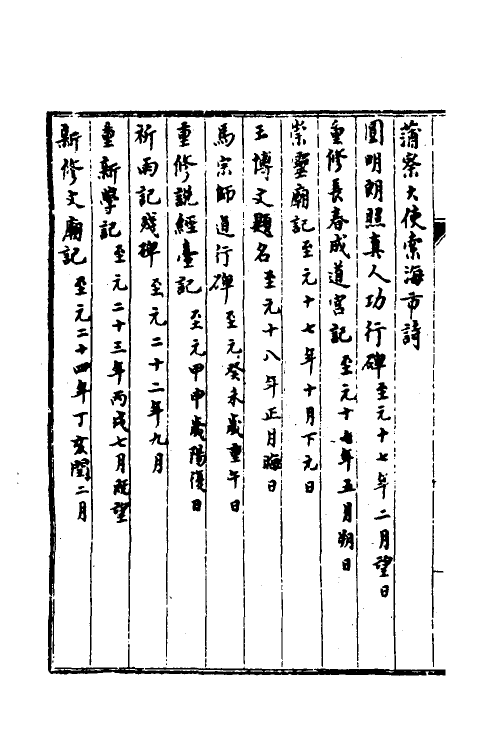 蒲察大使索海市詩
圓明朗照真人功行碑至元十七年二月望日
重修長春成道宮記至元十七年五月朔日
崇靈廟記至元十七年十月下元日
王博文題名至元十八年正月晦日
馬宗師道行碑至元癸未歲重午日
重修說經臺記至元甲申歲陽復日
祈雨記殘碑至元二十二年九月
重新學記至元二十三年丙戌七月既望
新修文廟記至元二十四年丁亥閏二月